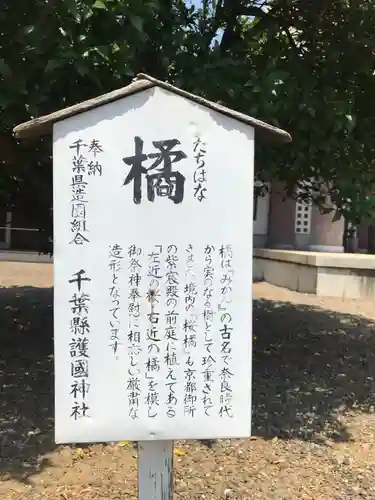 橘
たちばな
橘は『みかん』の古名で奈良時代
から実のなる樹として珍重され
き、境内の「桜橘」も京都御所
の紫宸殿の前庭に植えてある
「左近の桜・右近の橘」を模し
御祭神奉慰に相応しい厳粛な
造形となっています。
奉納
千葉県造園組合
千葉縣護國神社